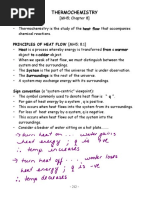 THERMOCHEMISTRY
[MH5; Chapter 8]
• Thermochemistry is the study of the heat flow that accompanies
chemical reactions.
PRINCIPLES OF HEAT FLOW [MH5; 8.1]
• Heat is a process whereby energy is transferred from a warmer
object to a colder object
• When we speak of heat flow, we must distinguish between the
system and the surroundings.
• The System is the part of the universe that is under observation.
• The Surroundings is the rest of the universe.
• A system may exchange energy with its surroundings.
Sign convention (a "system-centric" viewpoint):
• The symbol commonly used to denote heat flow is " q ".
• For gain of heat energy by a system , q is positive
• For loss of heat energy by a system , q is negative
• This can only occur if there is a temperature difference between the
system and the surroundings.
• Consider a beaker of water sitting on a hot plate....
turn heat on... water gains
heat energy; q is +ve
∴ temp increases
→ turn heat off... water loses
heat energy; q is -ve
∴ temp decreases